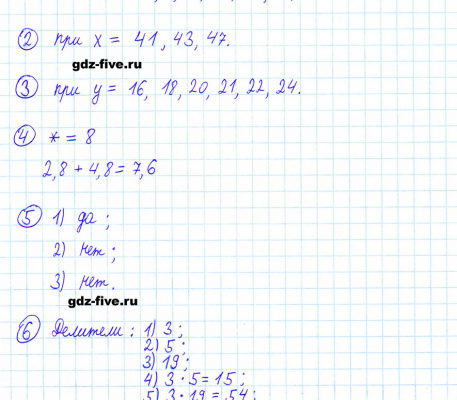 2 при x = 41, 43, 47.
gdz-five.ru
3 при y = 16, 18, 20, 21, 22, 24.
4 * = 8
2,8 + 4,8 = 7,6
5 1) да ;
2) нет ;
3) нет.
gdz-five.ru
6 Делители : 1) 3 ;
2) 5 ;
3) 19 ;
4) 3 · 5 = 15 ;
5) 3 · 19 = 54 ;